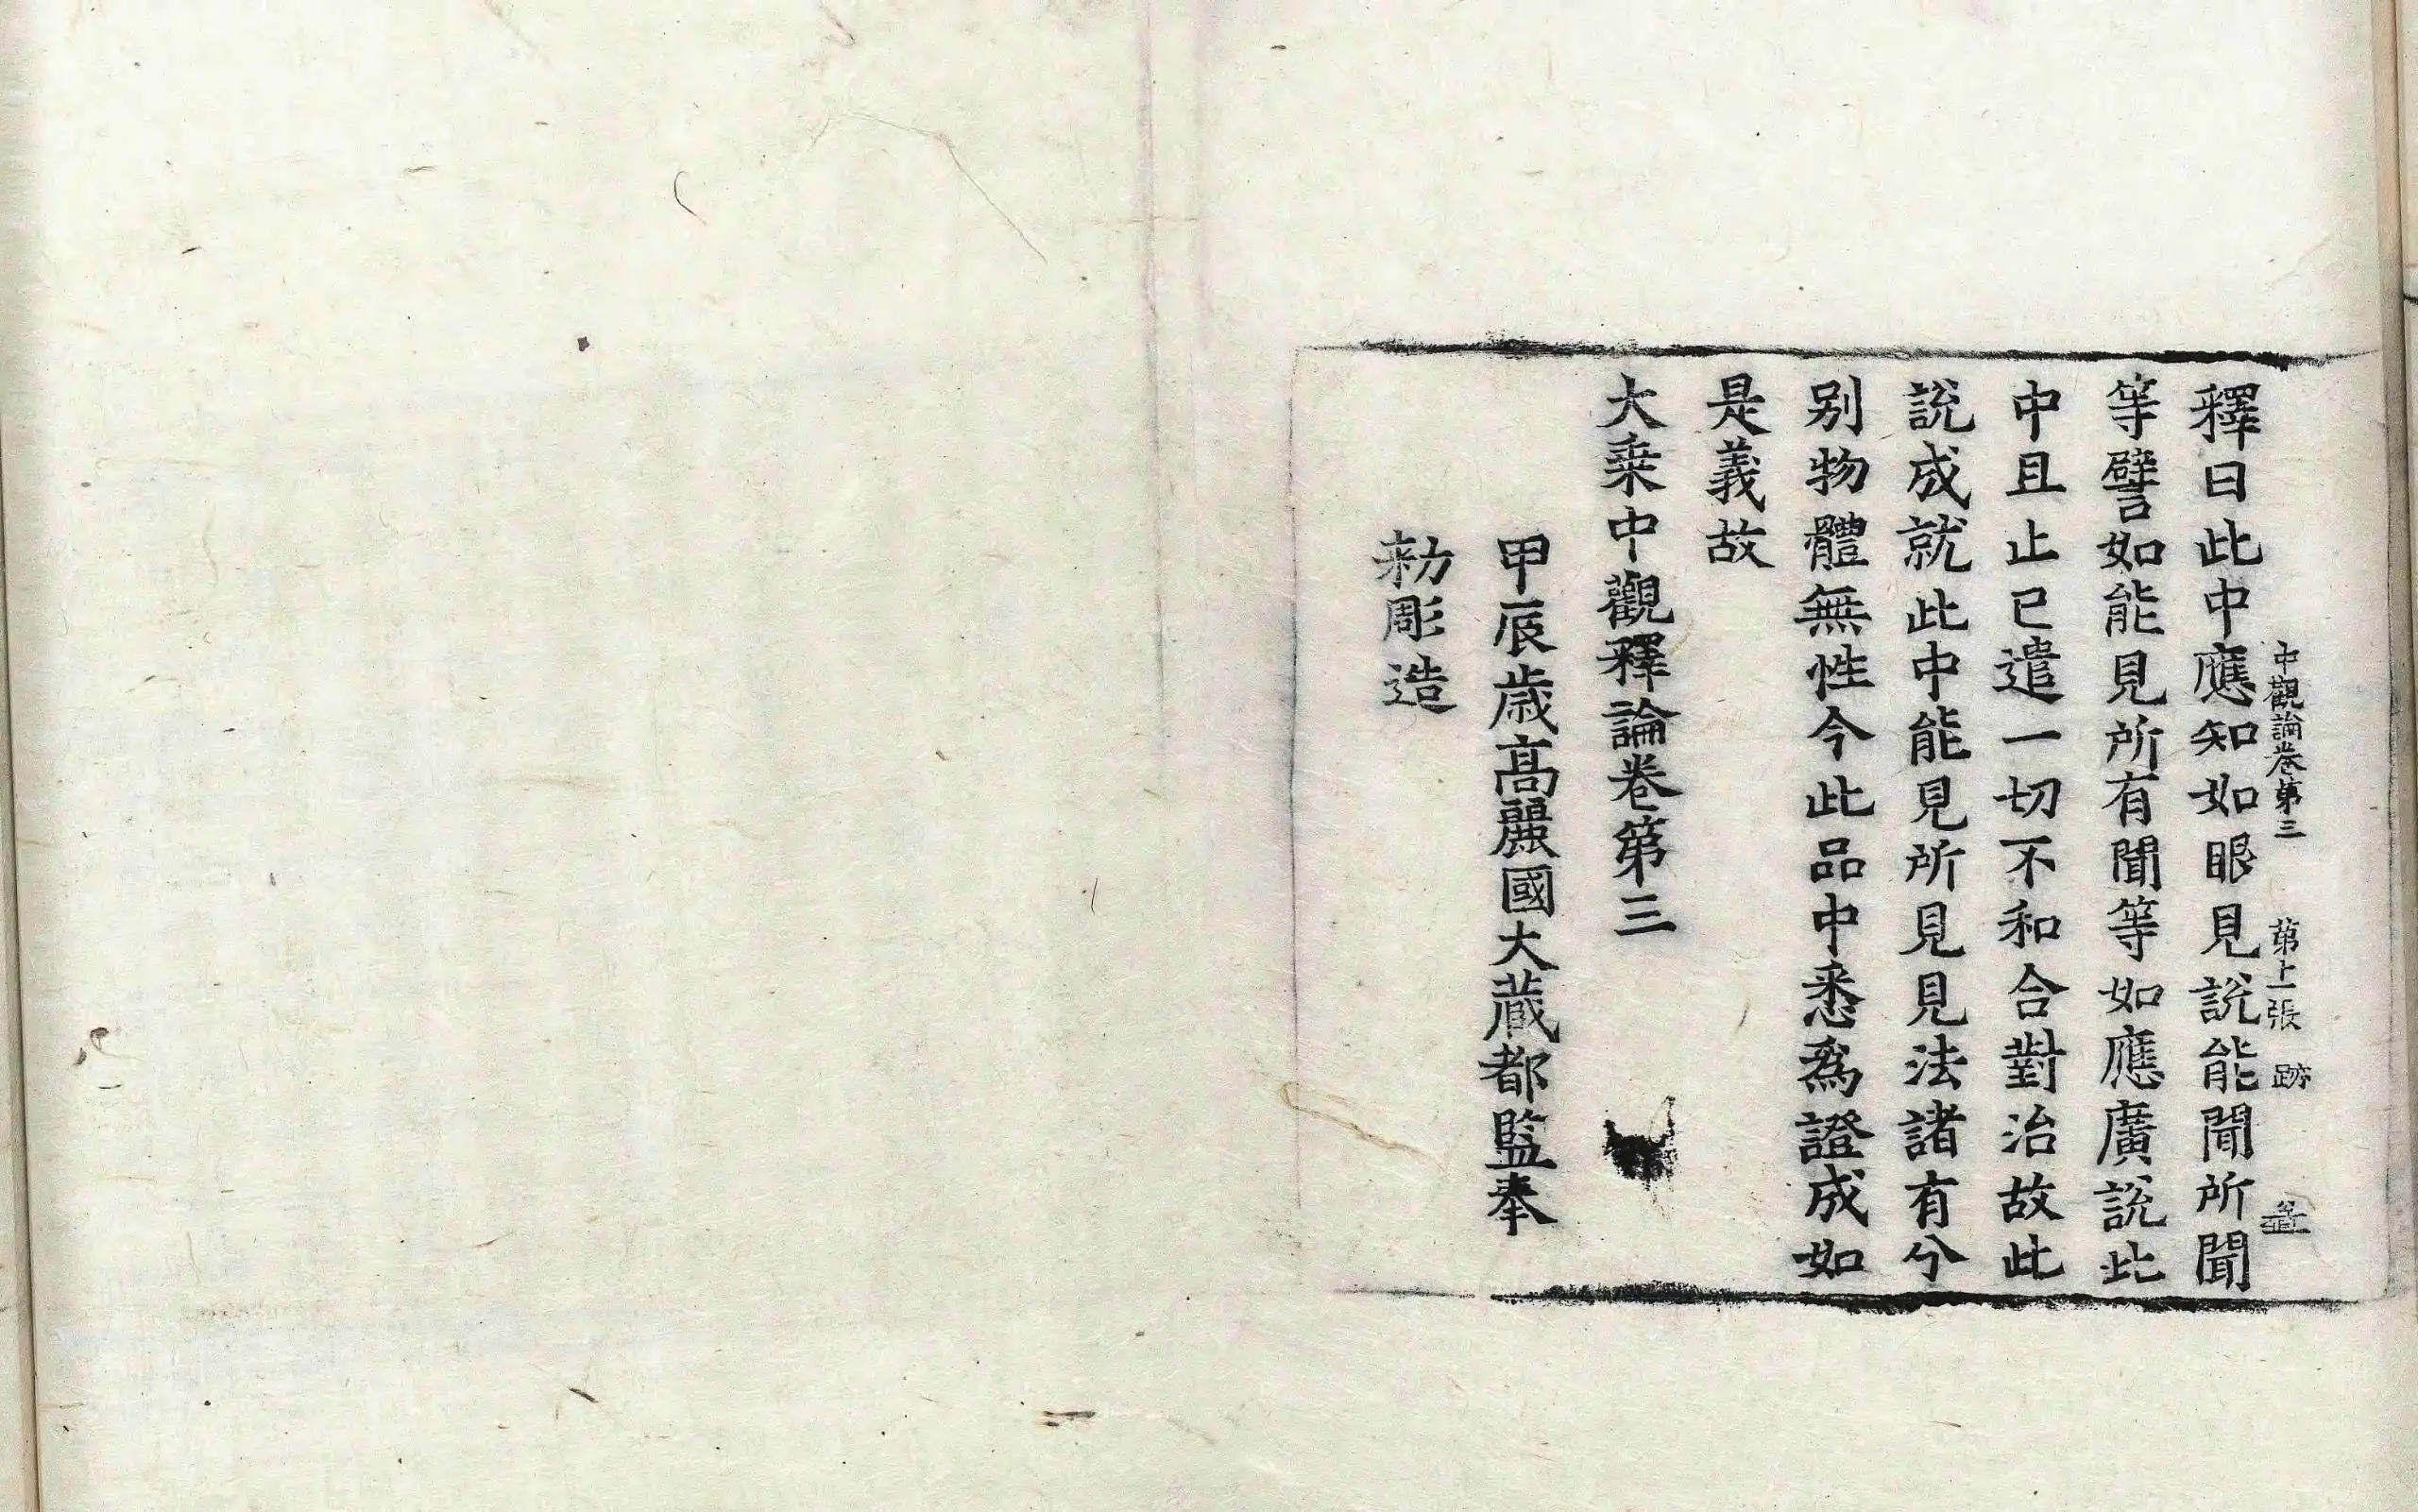 中觀論卷第三 第上張 跡
釋曰此中應知如眼見說能聞所聞
等譬如能見所有聞等如應廣說此
中且止已遣一切不和合對治故此
說成就此中能見所見見法諸有分
别物體無性今此品中悉爲證成如
是義故
大乗中觀釋論卷第三
甲辰歳高麗國大藏都監奉
勑彫造